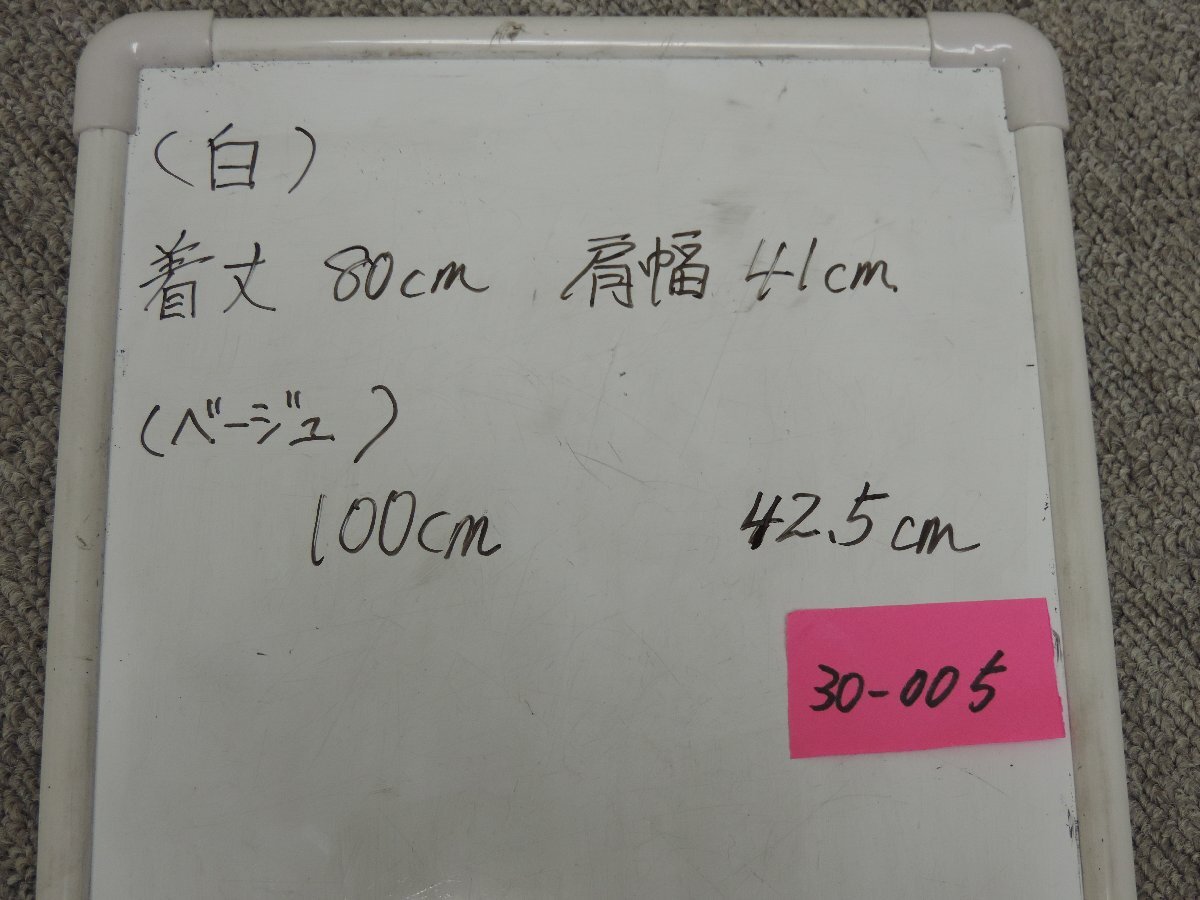 （白）
着丈 80cm 肩幅 41cm
（ベージュ）
100cm 42.5cm
30-005